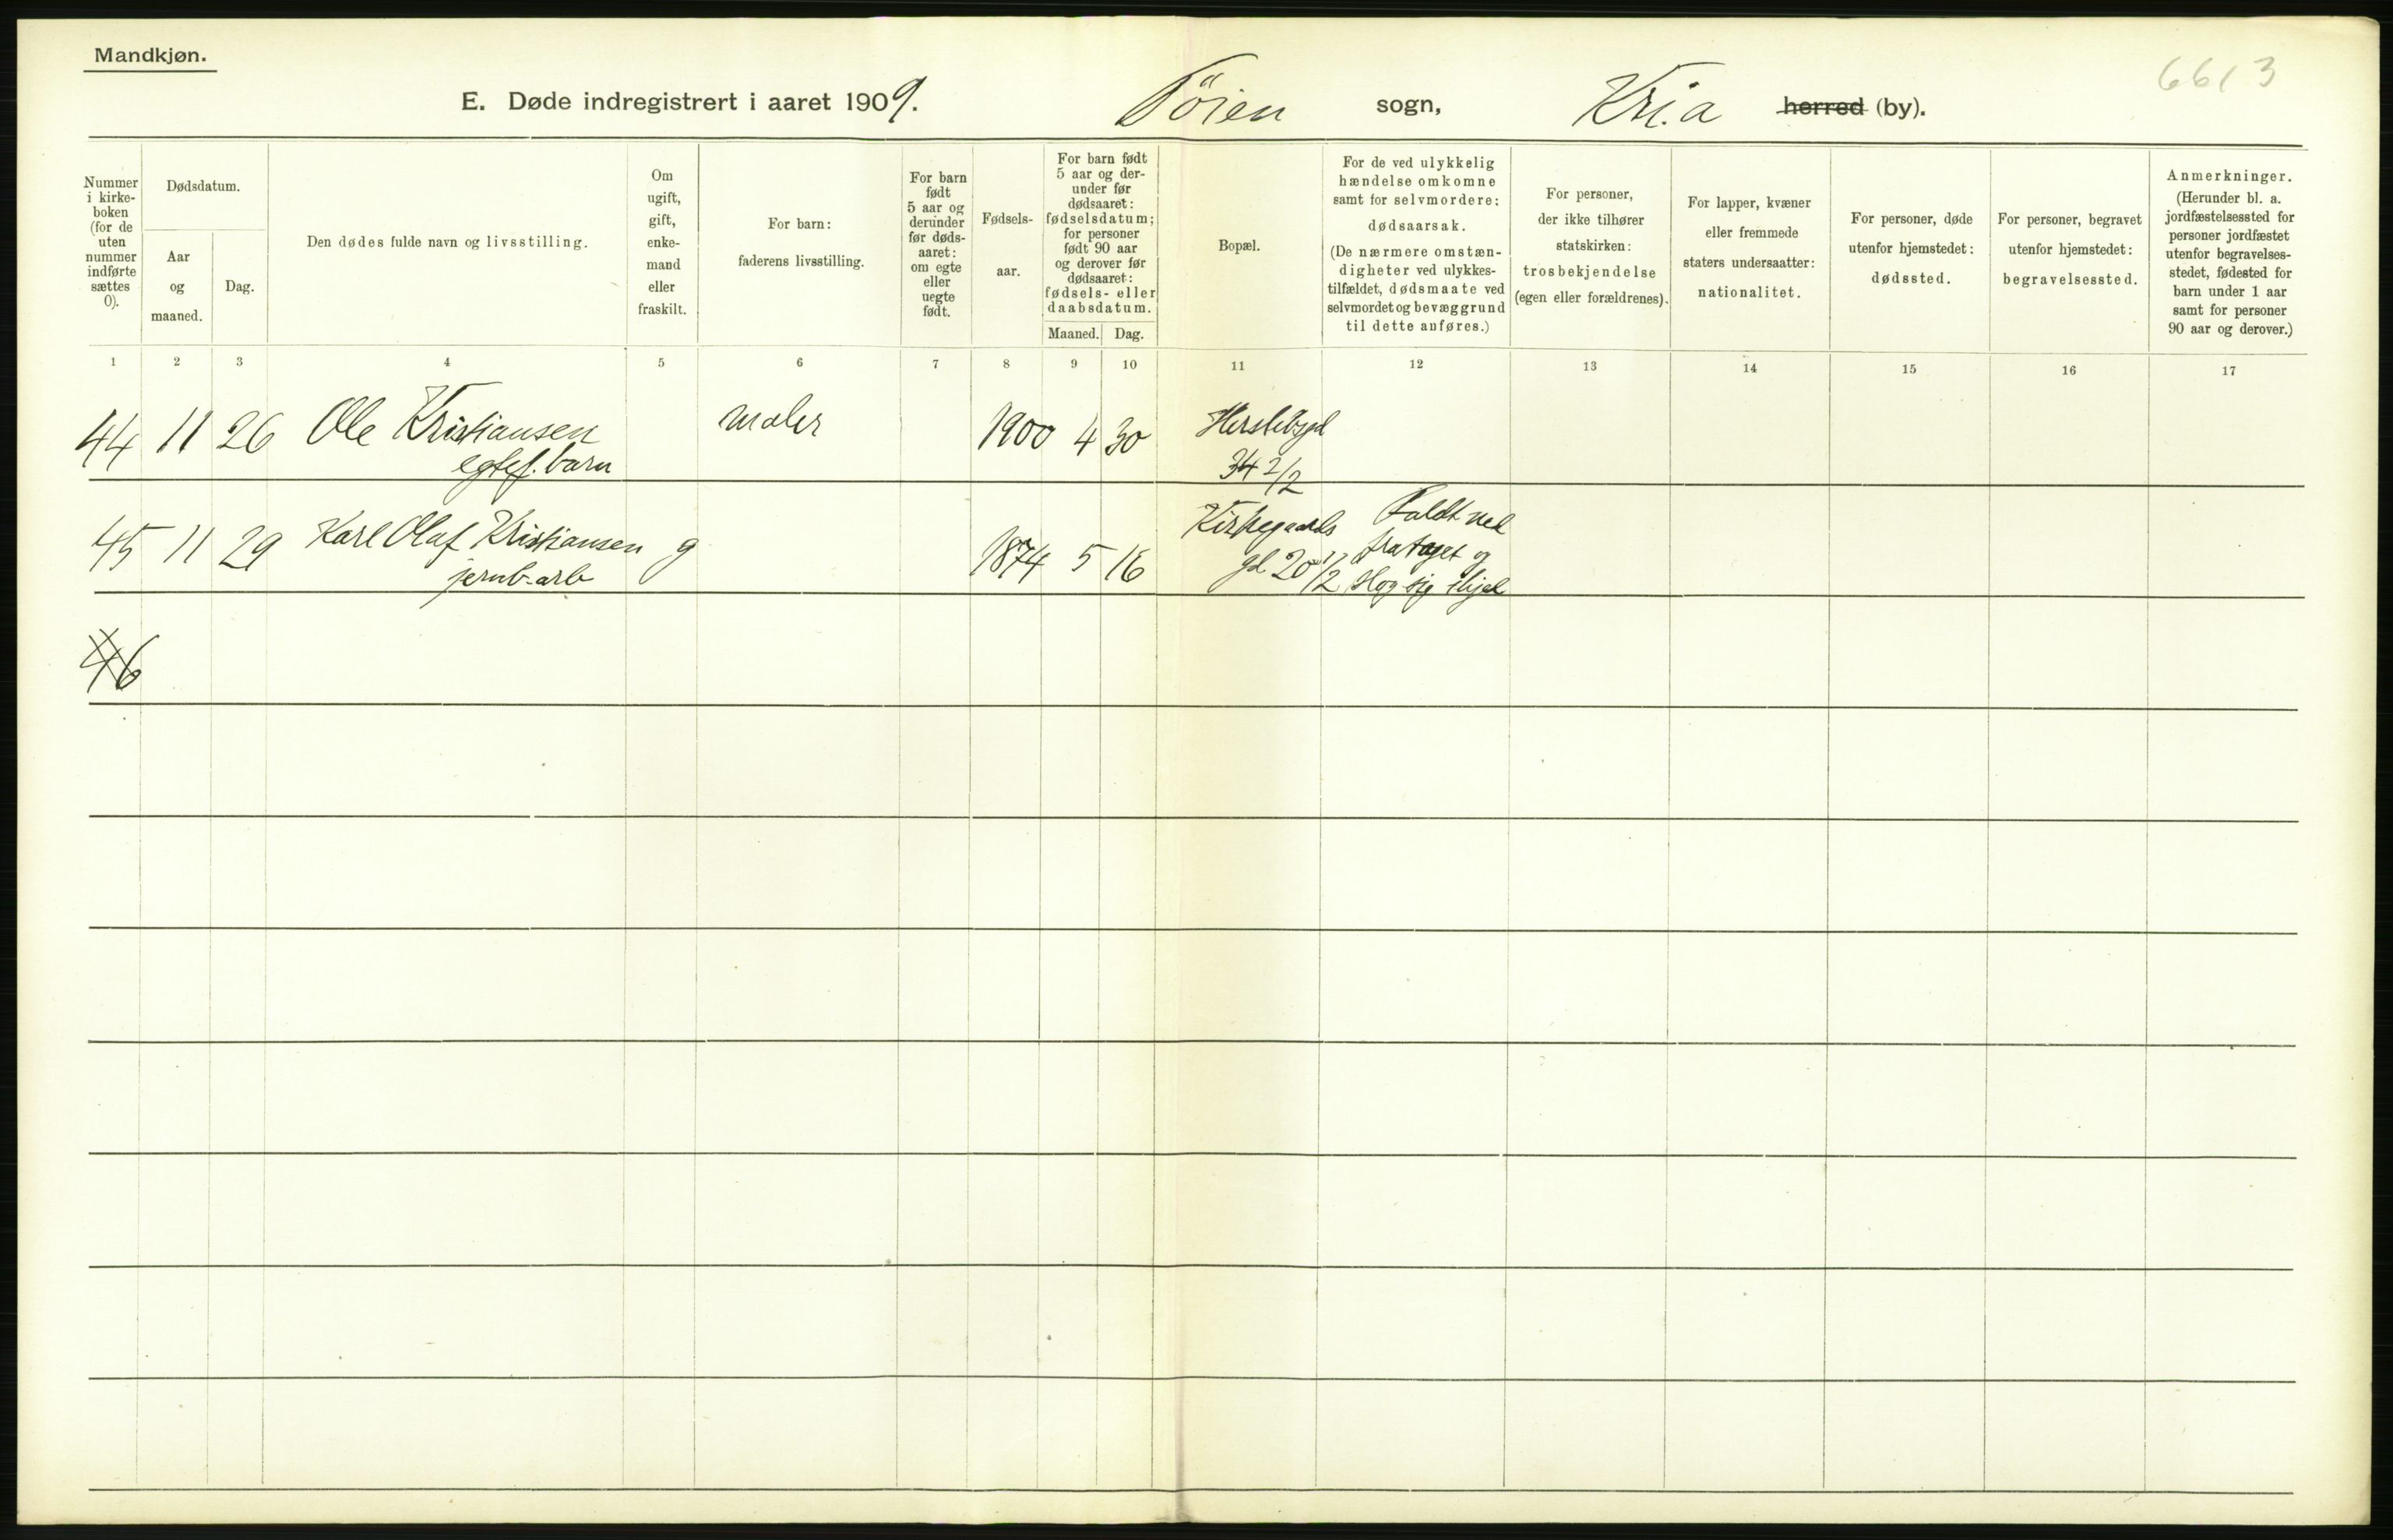 Mandkjøn.
6613
E. Døde indregistrert i aaret 1909. Töien sogn, Kri.a herred (by).
Nummer i kirke- boken (for de uten nummer indførte sættes 0).
Dødsdatum.
Aar og maaned.
Dag.
Den dødes fulde navn og livsstilling.
Om ugift, gift, enke- mand eller fraskilt.
For barn: faderens livsstilling.
For barn født 5 aar og derunder før døds- aaret: om egte eller uegte født.
Fødsels- aar.
For barn født 5 aar og der- under før dødsaaret: fødselsdatum; for personer født 90 aar og derover før dødsaaret: fødsels- eller daabsdatum.
Maaned. Dag.
Bopæl.
For de ved ulykkelig hændelse omkomne samt for selvmordere: dødsaarsak. (De nærmere omstæn- digheter ved ulykkes- tilfældet, dødsmaate ved selvmordet og bevæggrund til dette anføres.)
For personer, der ikke tilhører statskirken: trosbekjendelse (egen eller forældrenes).
For lapper, kvæner eller fremmede staters undersaatter: nationalitet.
For personer, døde utenfor hjemstedet: dødssted.
For personer, begravet utenfor hjemstedet: begravelsessted.
Anmerkninger. (Herunder bl. a. jordfæstelsessted for personer jordfæstet utenfor begravelses- stedet, fødested for barn under 1 aar samt for personer 90 aar og derover.)
1 2 3 4 5 6 7 8 9 10 11 12 13 14 15 16 17
44 11 26 Ole Kristiansen maler 1900 4 30 Herslebsgd
egtef. barn 34 2/2
45 11 29 Karl Olaf Kristiansen g 1874 5 16 Kirkegaards Faldt ned
jernb-arb gd 20 1/2 fra taget og
slog sig ihjel
46